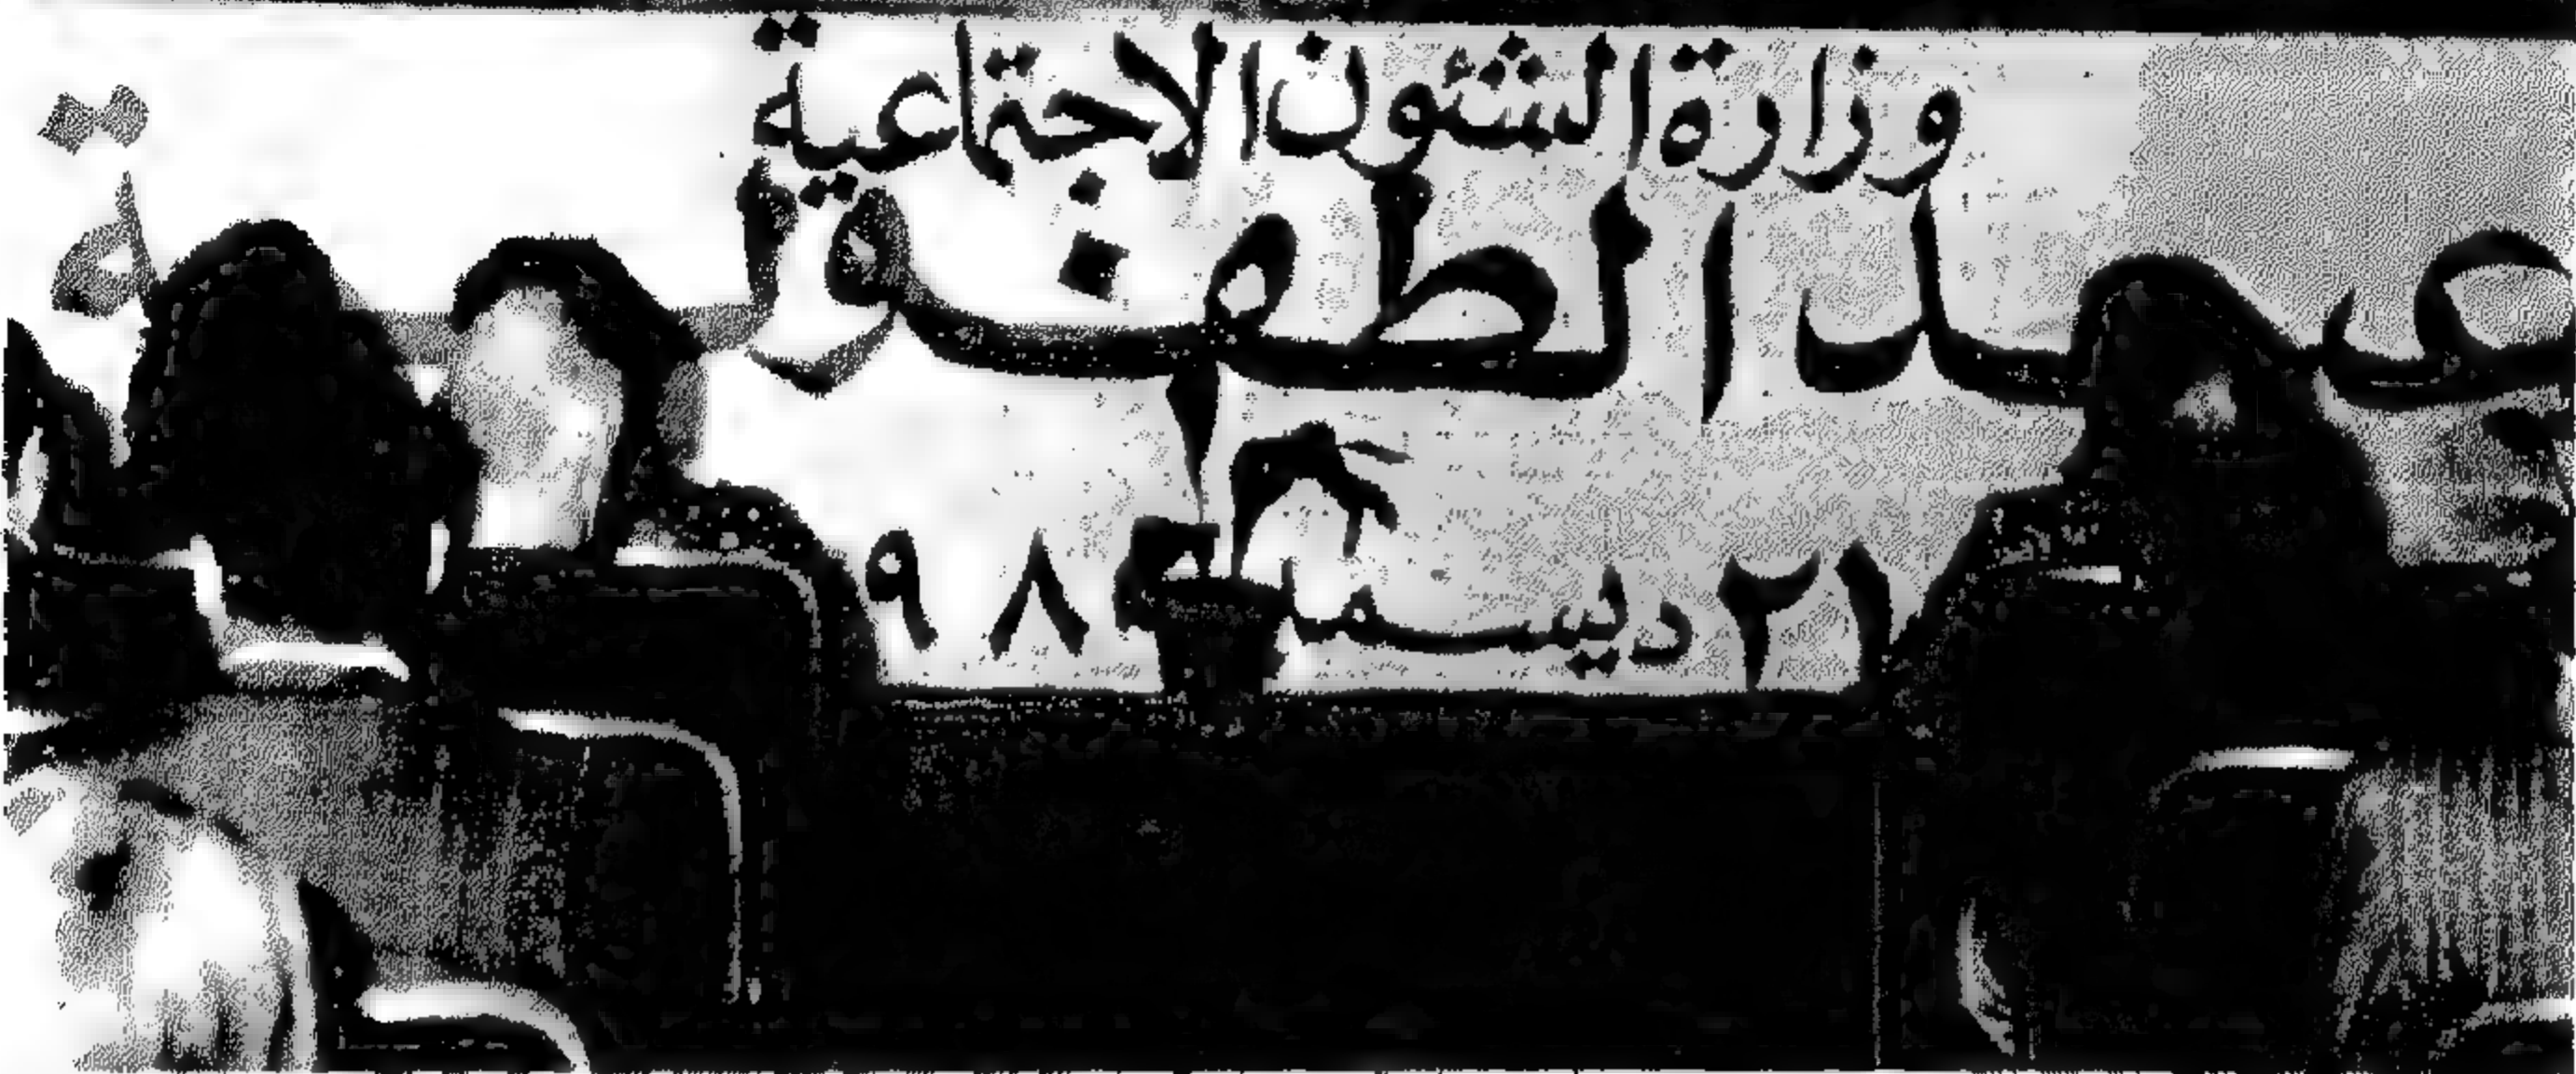 وزارة الشئون الاجتماعية
عيد الطفولة
٢١ ديسمبر ٩٨